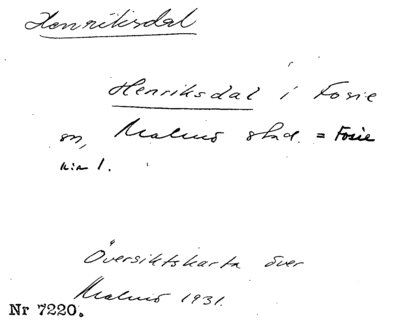 Henriksdal
Henriksdal i Fosie
sn, Malmö stad. = Fosie
n:a 1.
Översiktskarta över
Malmö 1931.
Nr 7220.